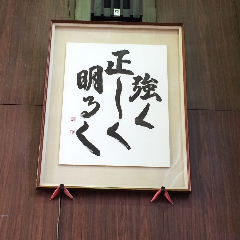 強く
正しく
明るく